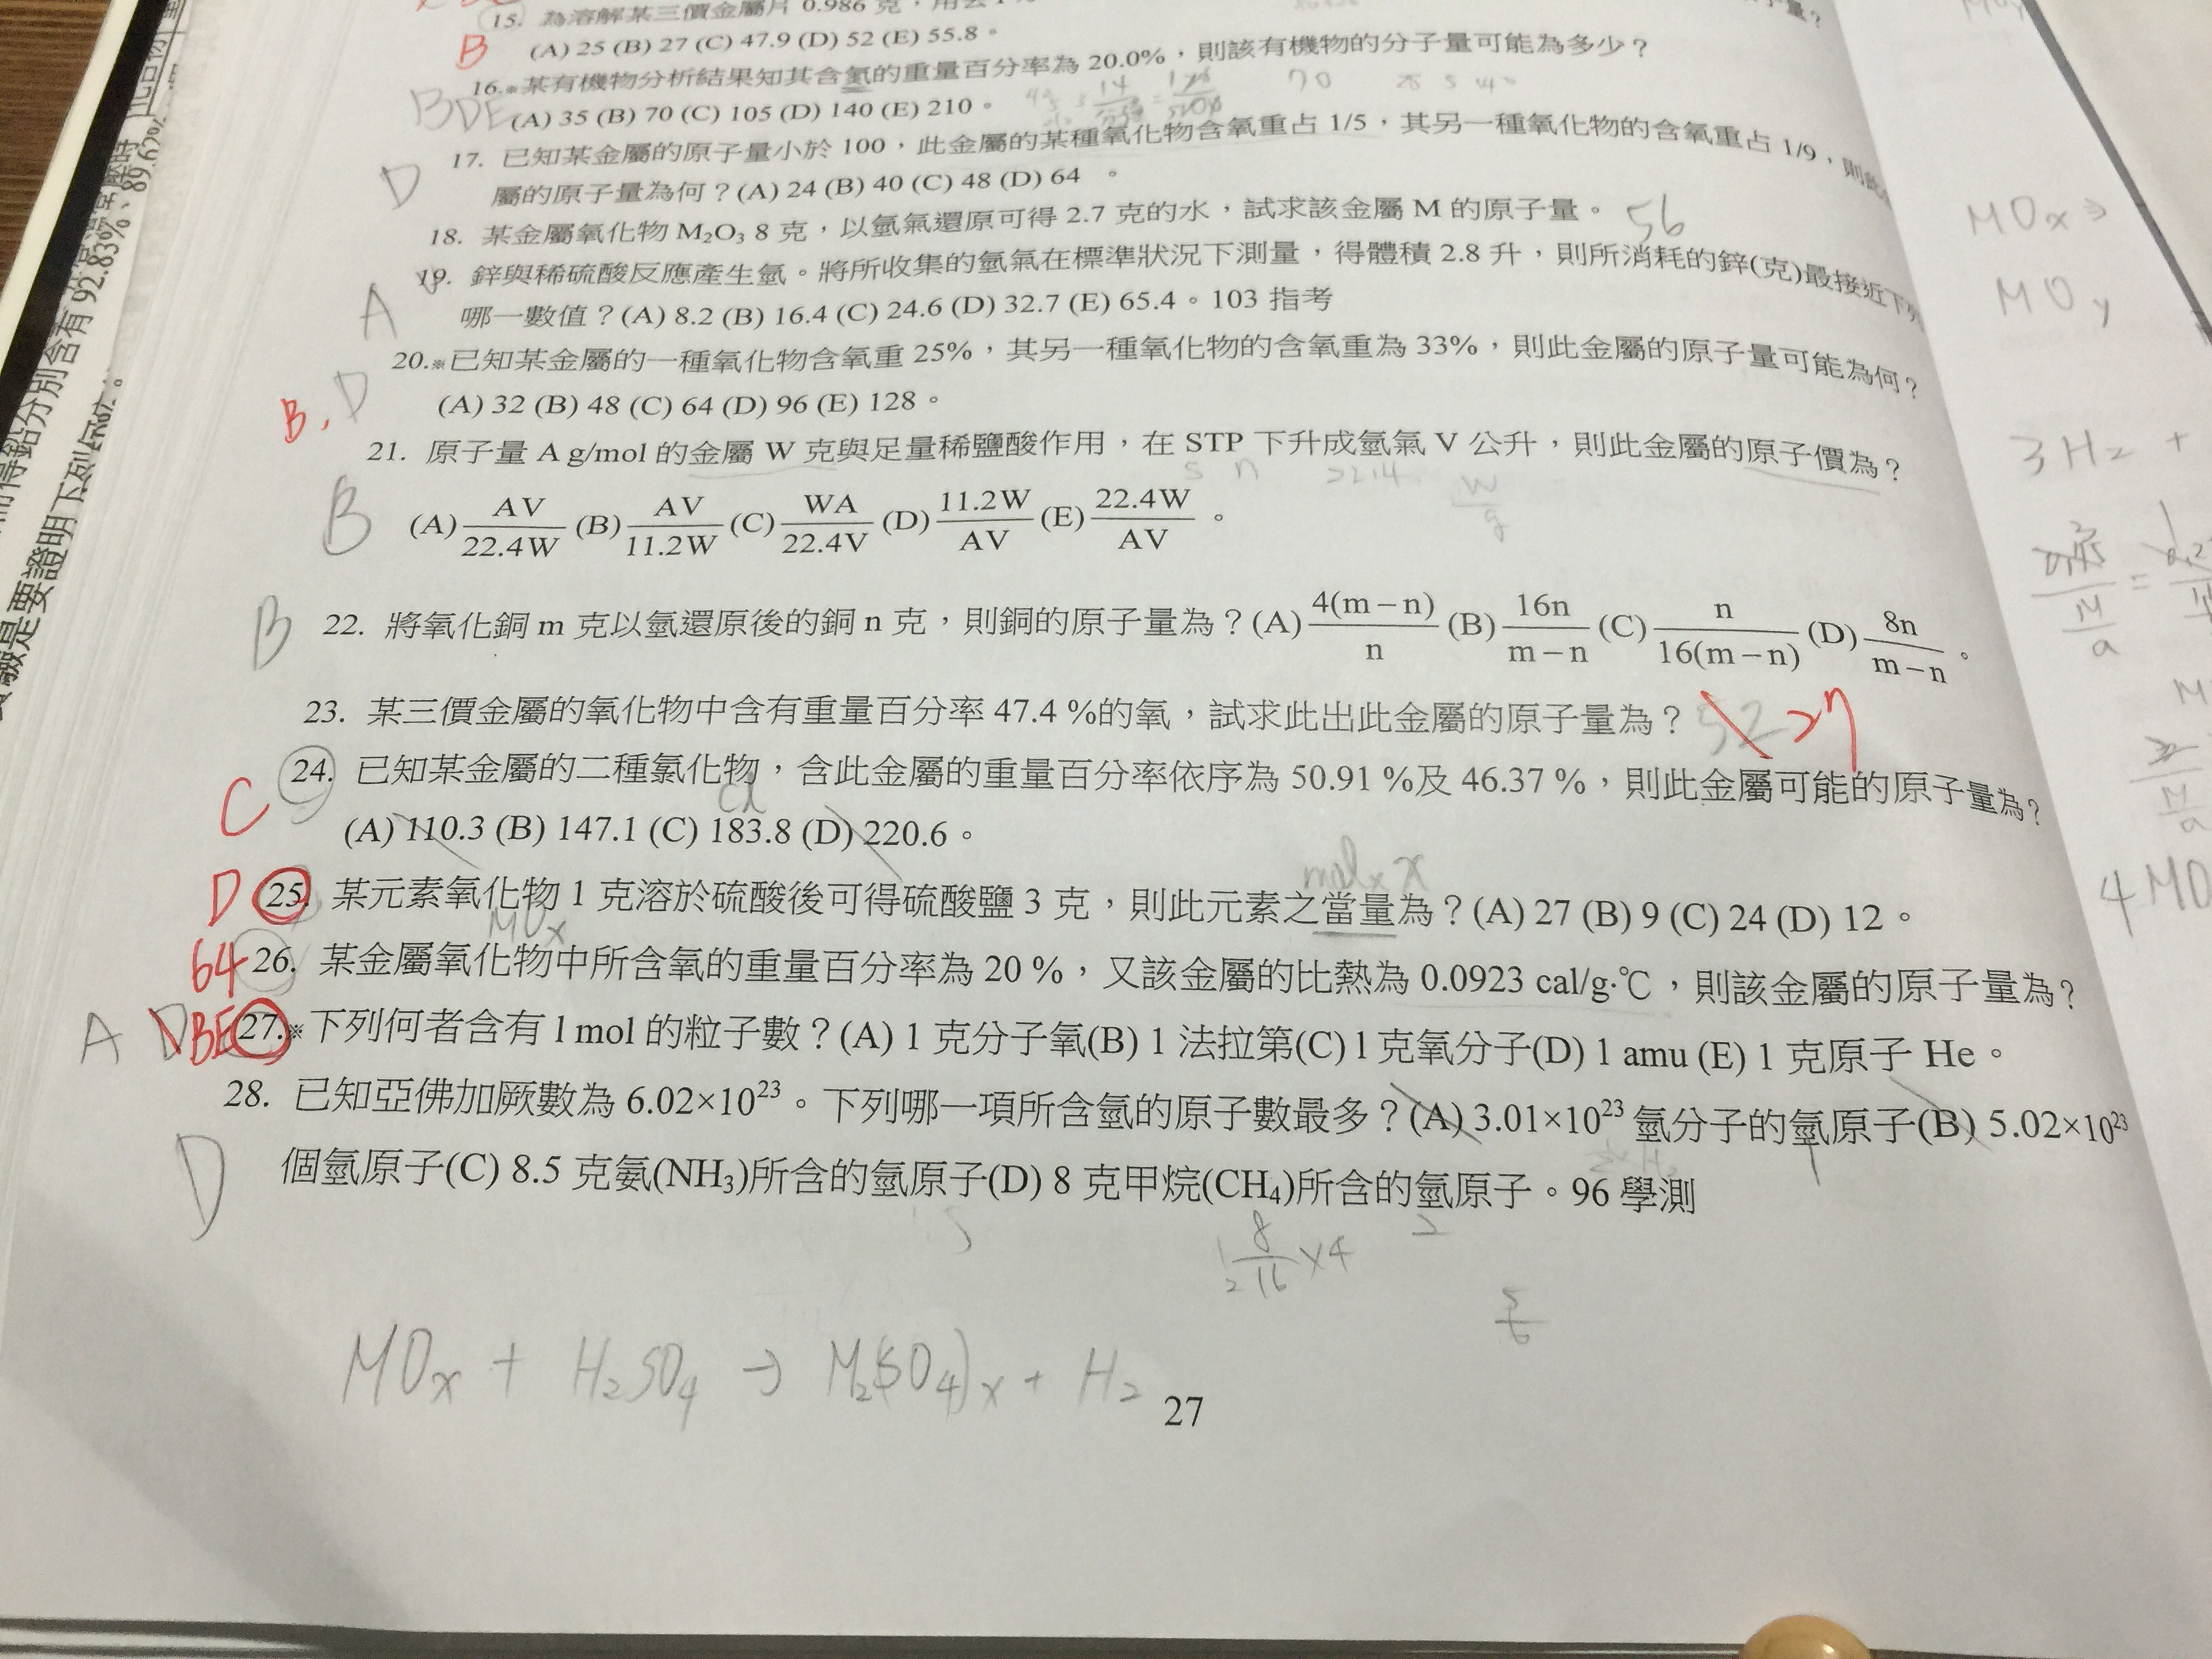 15. 為溶解某三價金屬片 0.986 克，用去
B (A) 25 (B) 27 (C) 47.9 (D) 52 (E) 55.8。
16.※某有機物分析結果知其含氮的重量百分率為 20.0%，則該有機物的分子量可能為多少？
BDE (A) 35 (B) 70 (C) 105 (D) 140 (E) 210。
17. 已知某金屬的原子量小於 100，此金屬的某種氧化物含氧重占 1/5，其另一種氧化物的含氧重占 1/9，則此
D 屬的原子量為何？(A) 24 (B) 40 (C) 48 (D) 64 。
18. 某金屬氧化物 M₂O₃ 8 克，以氫氣還原可得 2.7 克的水，試求該金屬 M 的原子量。 56
19. 鋅與稀硫酸反應產生氫。將所收集的氫氣在標準狀況下測量，得體積 2.8 升，則所消耗的鋅(克)最接近下列
A 哪一數值？(A) 8.2 (B) 16.4 (C) 24.6 (D) 32.7 (E) 65.4。103 指考
20.※已知某金屬的一種氧化物含氧重 25%，其另一種氧化物的含氧重為 33%，則此金屬的原子量可能為何？
B, D (A) 32 (B) 48 (C) 64 (D) 96 (E) 128。
21. 原子量 A g/mol 的金屬 W 克與足量稀鹽酸作用，在 STP 下升成氫氣 V 公升，則此金屬的原子價為？
B (A) AV/22.4W (B) AV/11.2W (C) WA/22.4V (D) 11.2W/AV (E) 22.4W/AV 。
B 22. 將氧化銅 m 克以氫還原後的銅 n 克，則銅的原子量為？(A) 4(m−n)/n (B) 16n/m−n (C) n/16(m−n) (D) 8n/m−n 。
23. 某三價金屬的氧化物中含有重量百分率 47.4 %的氧，試求此出此金屬的原子量為？ 52 27
24. 已知某金屬的二種氯化物，含此金屬的重量百分率依序為 50.91 %及 46.37 %，則此金屬可能的原子量為？
Cl
C (A) 110.3 (B) 147.1 (C) 183.8 (D) 220.6。
mol x x
D 25. 某元素氧化物 1 克溶於硫酸後可得硫酸鹽 3 克，則此元素之當量為？(A) 27 (B) 9 (C) 24 (D) 12。
MOx
64 26. 某金屬氧化物中所含氧的重量百分率為 20 %，又該金屬的比熱為 0.0923 cal/g·℃，則該金屬的原子量為？
A D BE 27.※下列何者含有 1 mol 的粒子數？(A) 1 克分子氧(B) 1 法拉第(C) 1 克氧分子(D) 1 amu (E) 1 克原子 He。
28. 已知亞佛加厥數為 6.02×10²³。下列哪一項所含氫的原子數最多？(A) 3.01×10²³ 氫分子的氫原子(B) 5.02×10²³
D 個氫原子(C) 8.5 克氨(NH₃)所含的氫原子(D) 8 克甲烷(CH₄)所含的氫原子。96 學測
8/16 ×4 2
MOx + H₂SO₄ → M₂(SO₄)x + H₂
27
MOx
MOy
3H₂ +
4MO